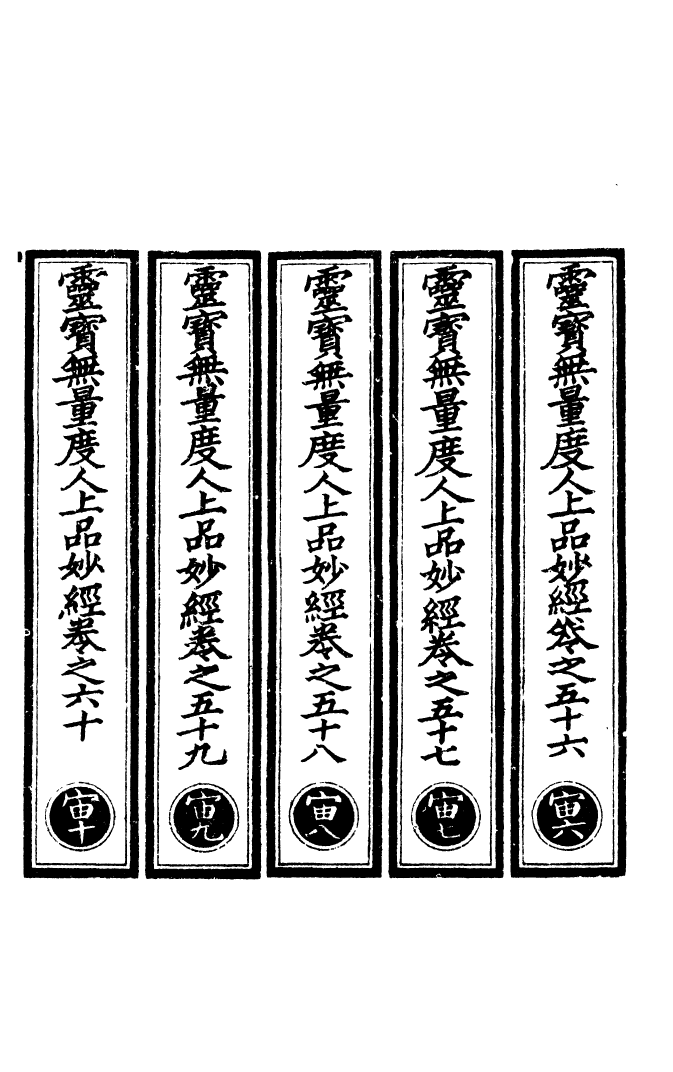 靈寶無量度人上品妙經卷之五十六
宙六
靈寶無量度人上品妙經卷之五十七
宙七
靈寶無量度人上品妙經卷之五十八
宙八
靈寶無量度人上品妙經卷之五十九
宙九
靈寶無量度人上品妙經卷之六十
宙十